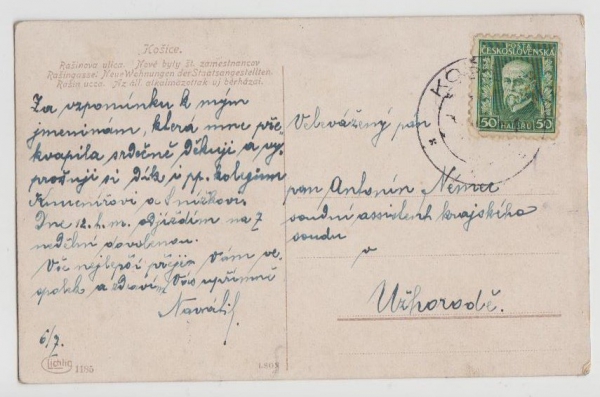 Košice.
Rašinova ulica. Nové byty št. zamestnancov
Rašingasse. Neue Wohnungen der Staatsangestellten.
Rašin ucca. Az áll. alkalmazottak uj bérházai.
Za vzpomínku k mým
jmeninám, která mne pře-
kvapila srdečně děkuji a vy-
prošuji si dík i pp. kolegům
a
Dne 12. t. m. odjíždím na 7
nedělní dovolenou.
Vše nejlepší přeje Vám ve-
spolek a zdraví Vás upřímně
Navrátil
6/7.
Lichtig
1186
LEON
POŠTA
ČESKOSLOVENSKÁ
50 HALÉŘŮ 50
KO
Velevážený pán
pan Antonín Němec
soudní assistent krajského
soudu
v
Užhorodě.